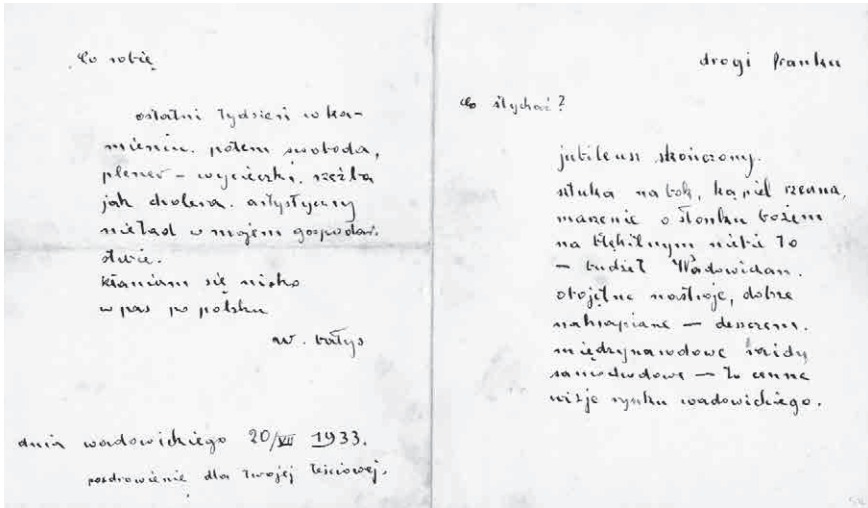 Co robię
ostatni tydzień w ka-
mieniu. potem swoboda,
plener – wycieczki. rzeźba
jak cholera. artystyczny
nieład w mojem gospodar-
stwie.
kłaniam się nisko
w pas po polsku
w. bałys
dnia wadowickiego 20/VII 1933.
pozdrowienie dla twojej teściowej.
drogi franku
co słychać?
jubileusz skończony.
sztuka na bok, kąpiel rzeczna,
marzenie o słonku bożem
na błękitnym niebie to
– budżet Wadowidan.
obojętne nastroje, dobrze
nakrapiane – deszczem.
międzynarodowe rajdy
samochodowe – to cenne
wizje rynku wadowickiego.